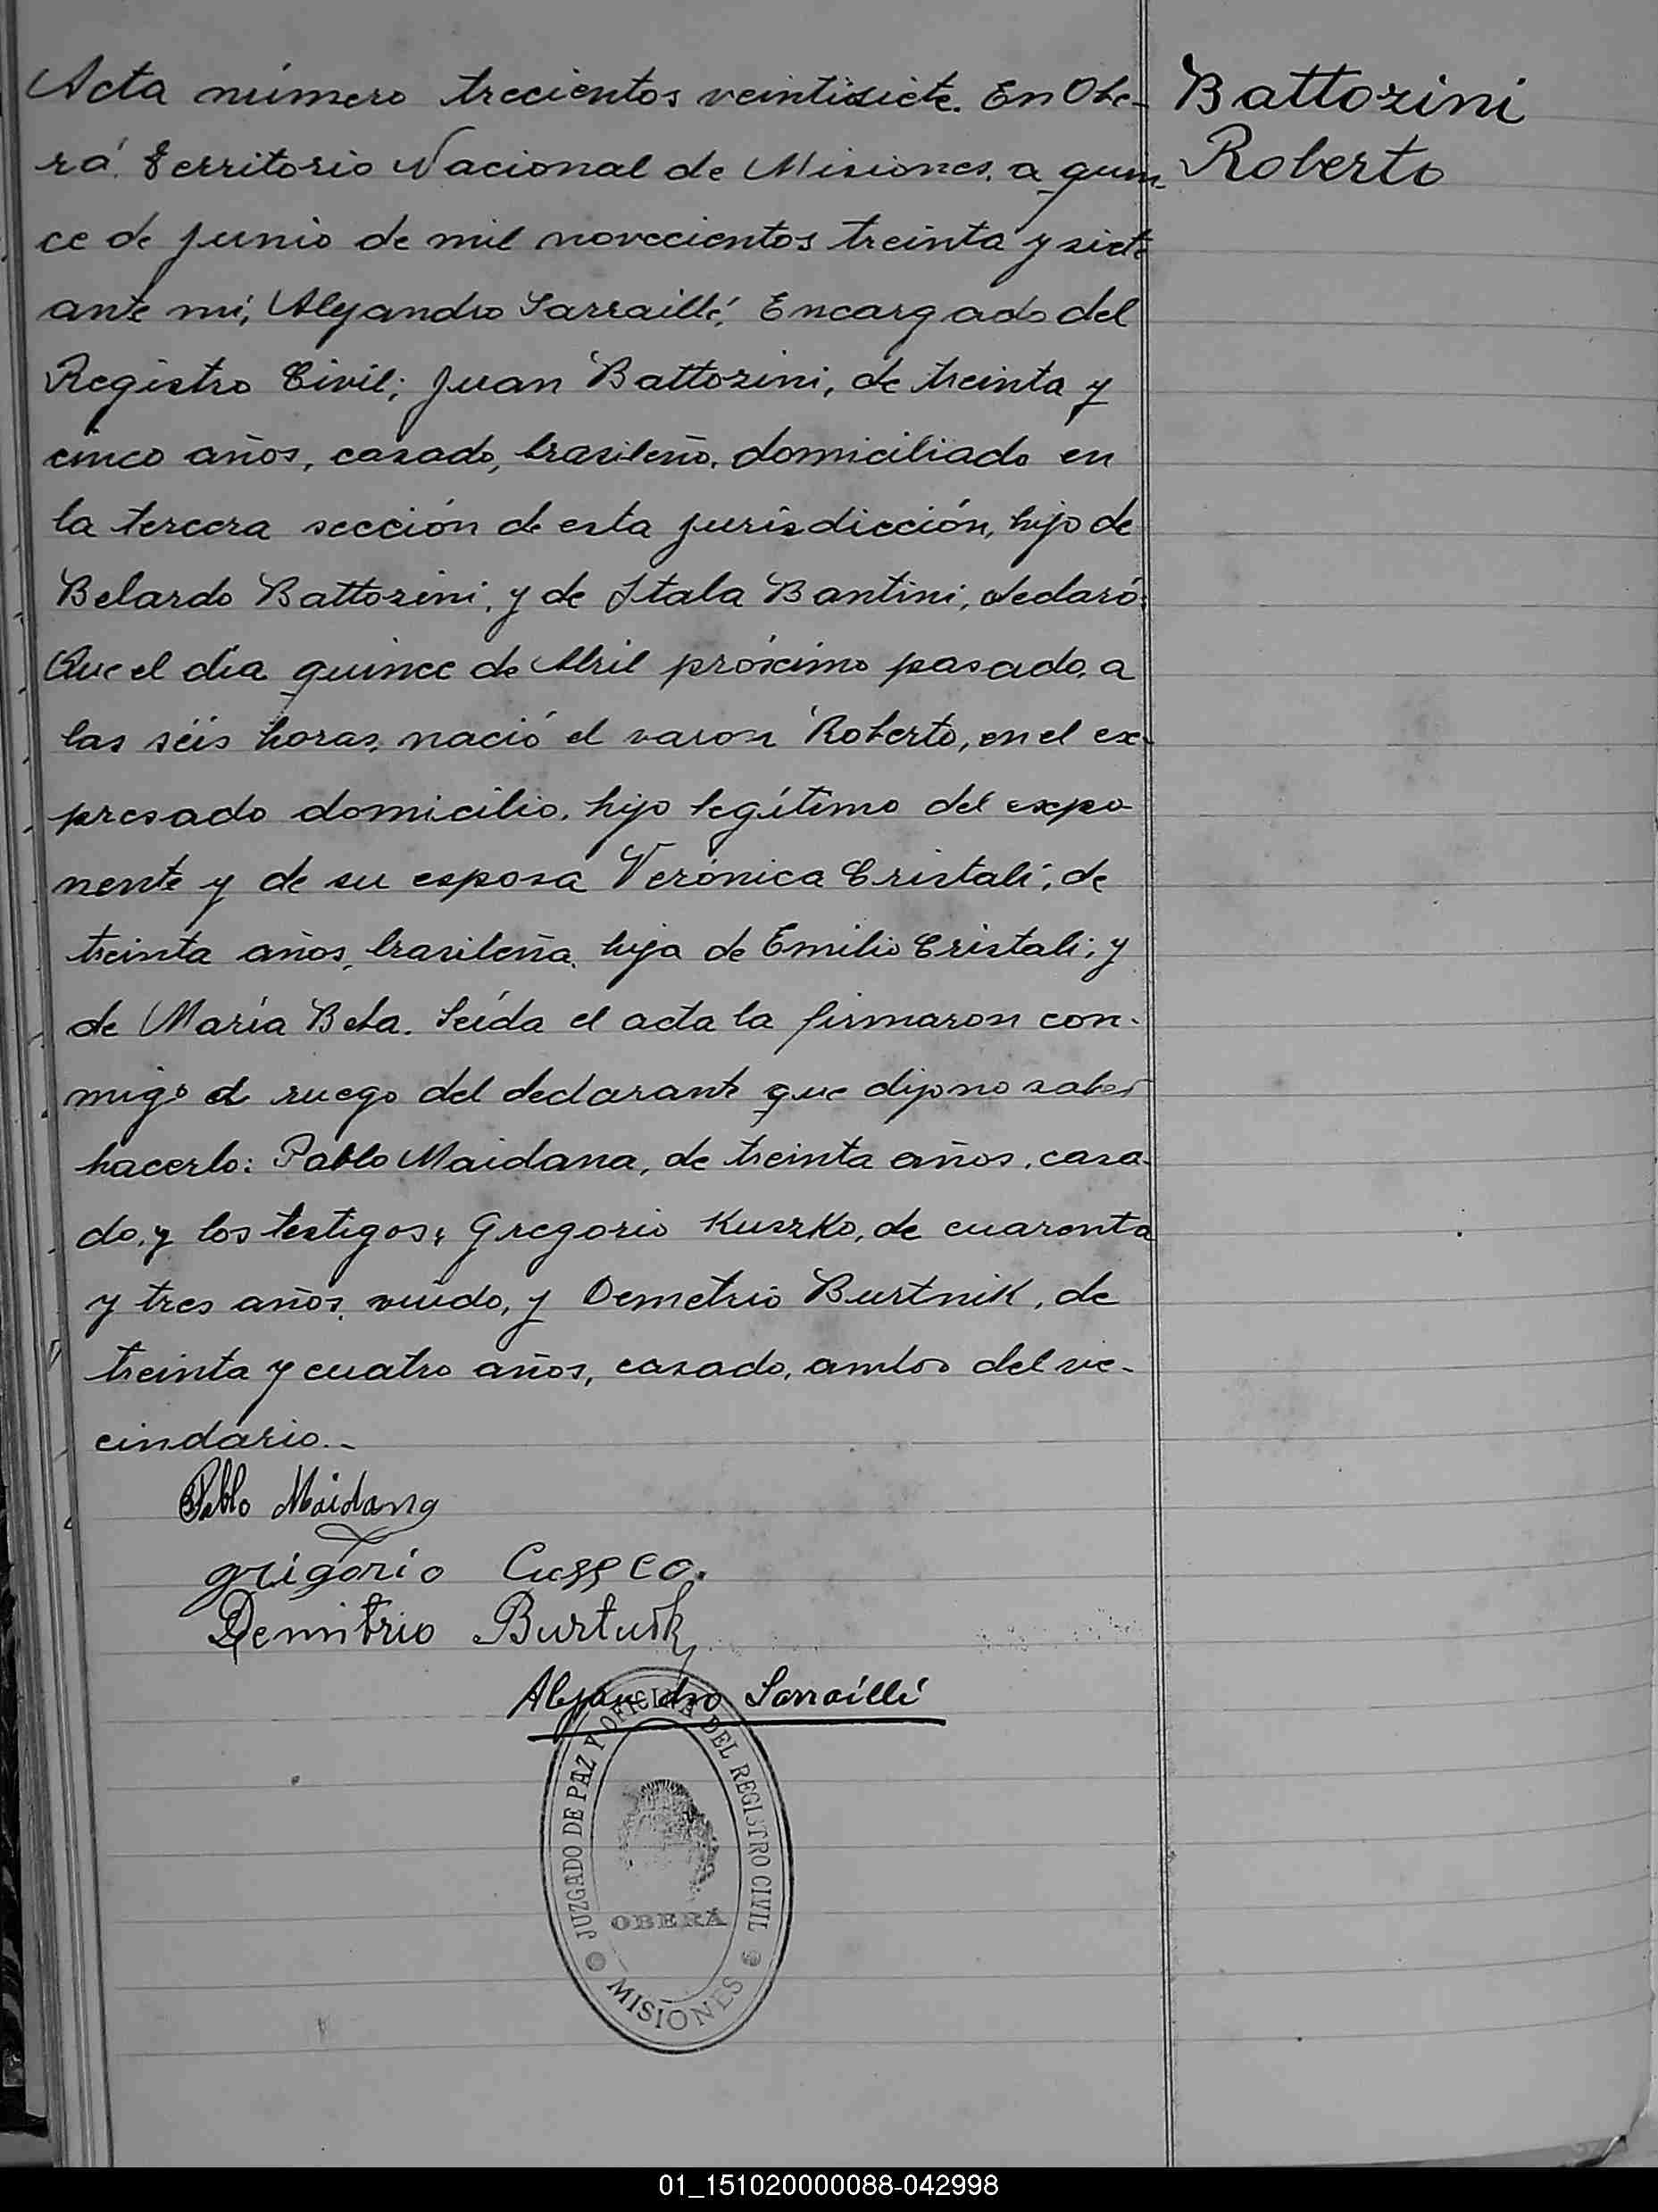 Acta número trecientos veintisiete. En Obe-
rá, Territorio Nacional de Misiones, a quin-
ce de junio de mil novecientos treinta y siete
ante mí, Alejandro Sarraillé, Encargado del
Registro Civil; Juan Battozini, de treinta y
cinco años, casado, brasileño, domiciliado en
la tercera sección de esta jurisdicción, hijo de
Belardo Battozini, y de Itala Bantini, declaró:
Que el día quince de Abril próximo pasado, a
las séis horas, nació el varon Roberto, en el ex-
presado domicilio, hijo legítimo del expo-
nente y de su esposa Verónica Cristali; de
treinta años, brasileña, hija de Emilio Cristali; y
de María Beta. Leída el acta la firmaron con-
migo a ruego del declarante que dijo no saber
hacerlo: Pablo Maidana, de treinta años, casa-
do, y los testigos; Gregorio Kuszko, de cuarenta
y tres años, viudo, y Demetrio Burtnik, de
treinta y cuatro años, casado, ambos del ve-
cindario.-
Pablo Maidana
grigorio Cuszco.
Demitrio Burtnik
Alejandro Sarraillé
JUZGADO DE PAZ Y OFICINA DEL REGISTRO CIVIL
OBERÁ
MISIONES
Battozini
Roberto
01_151020000088-042998